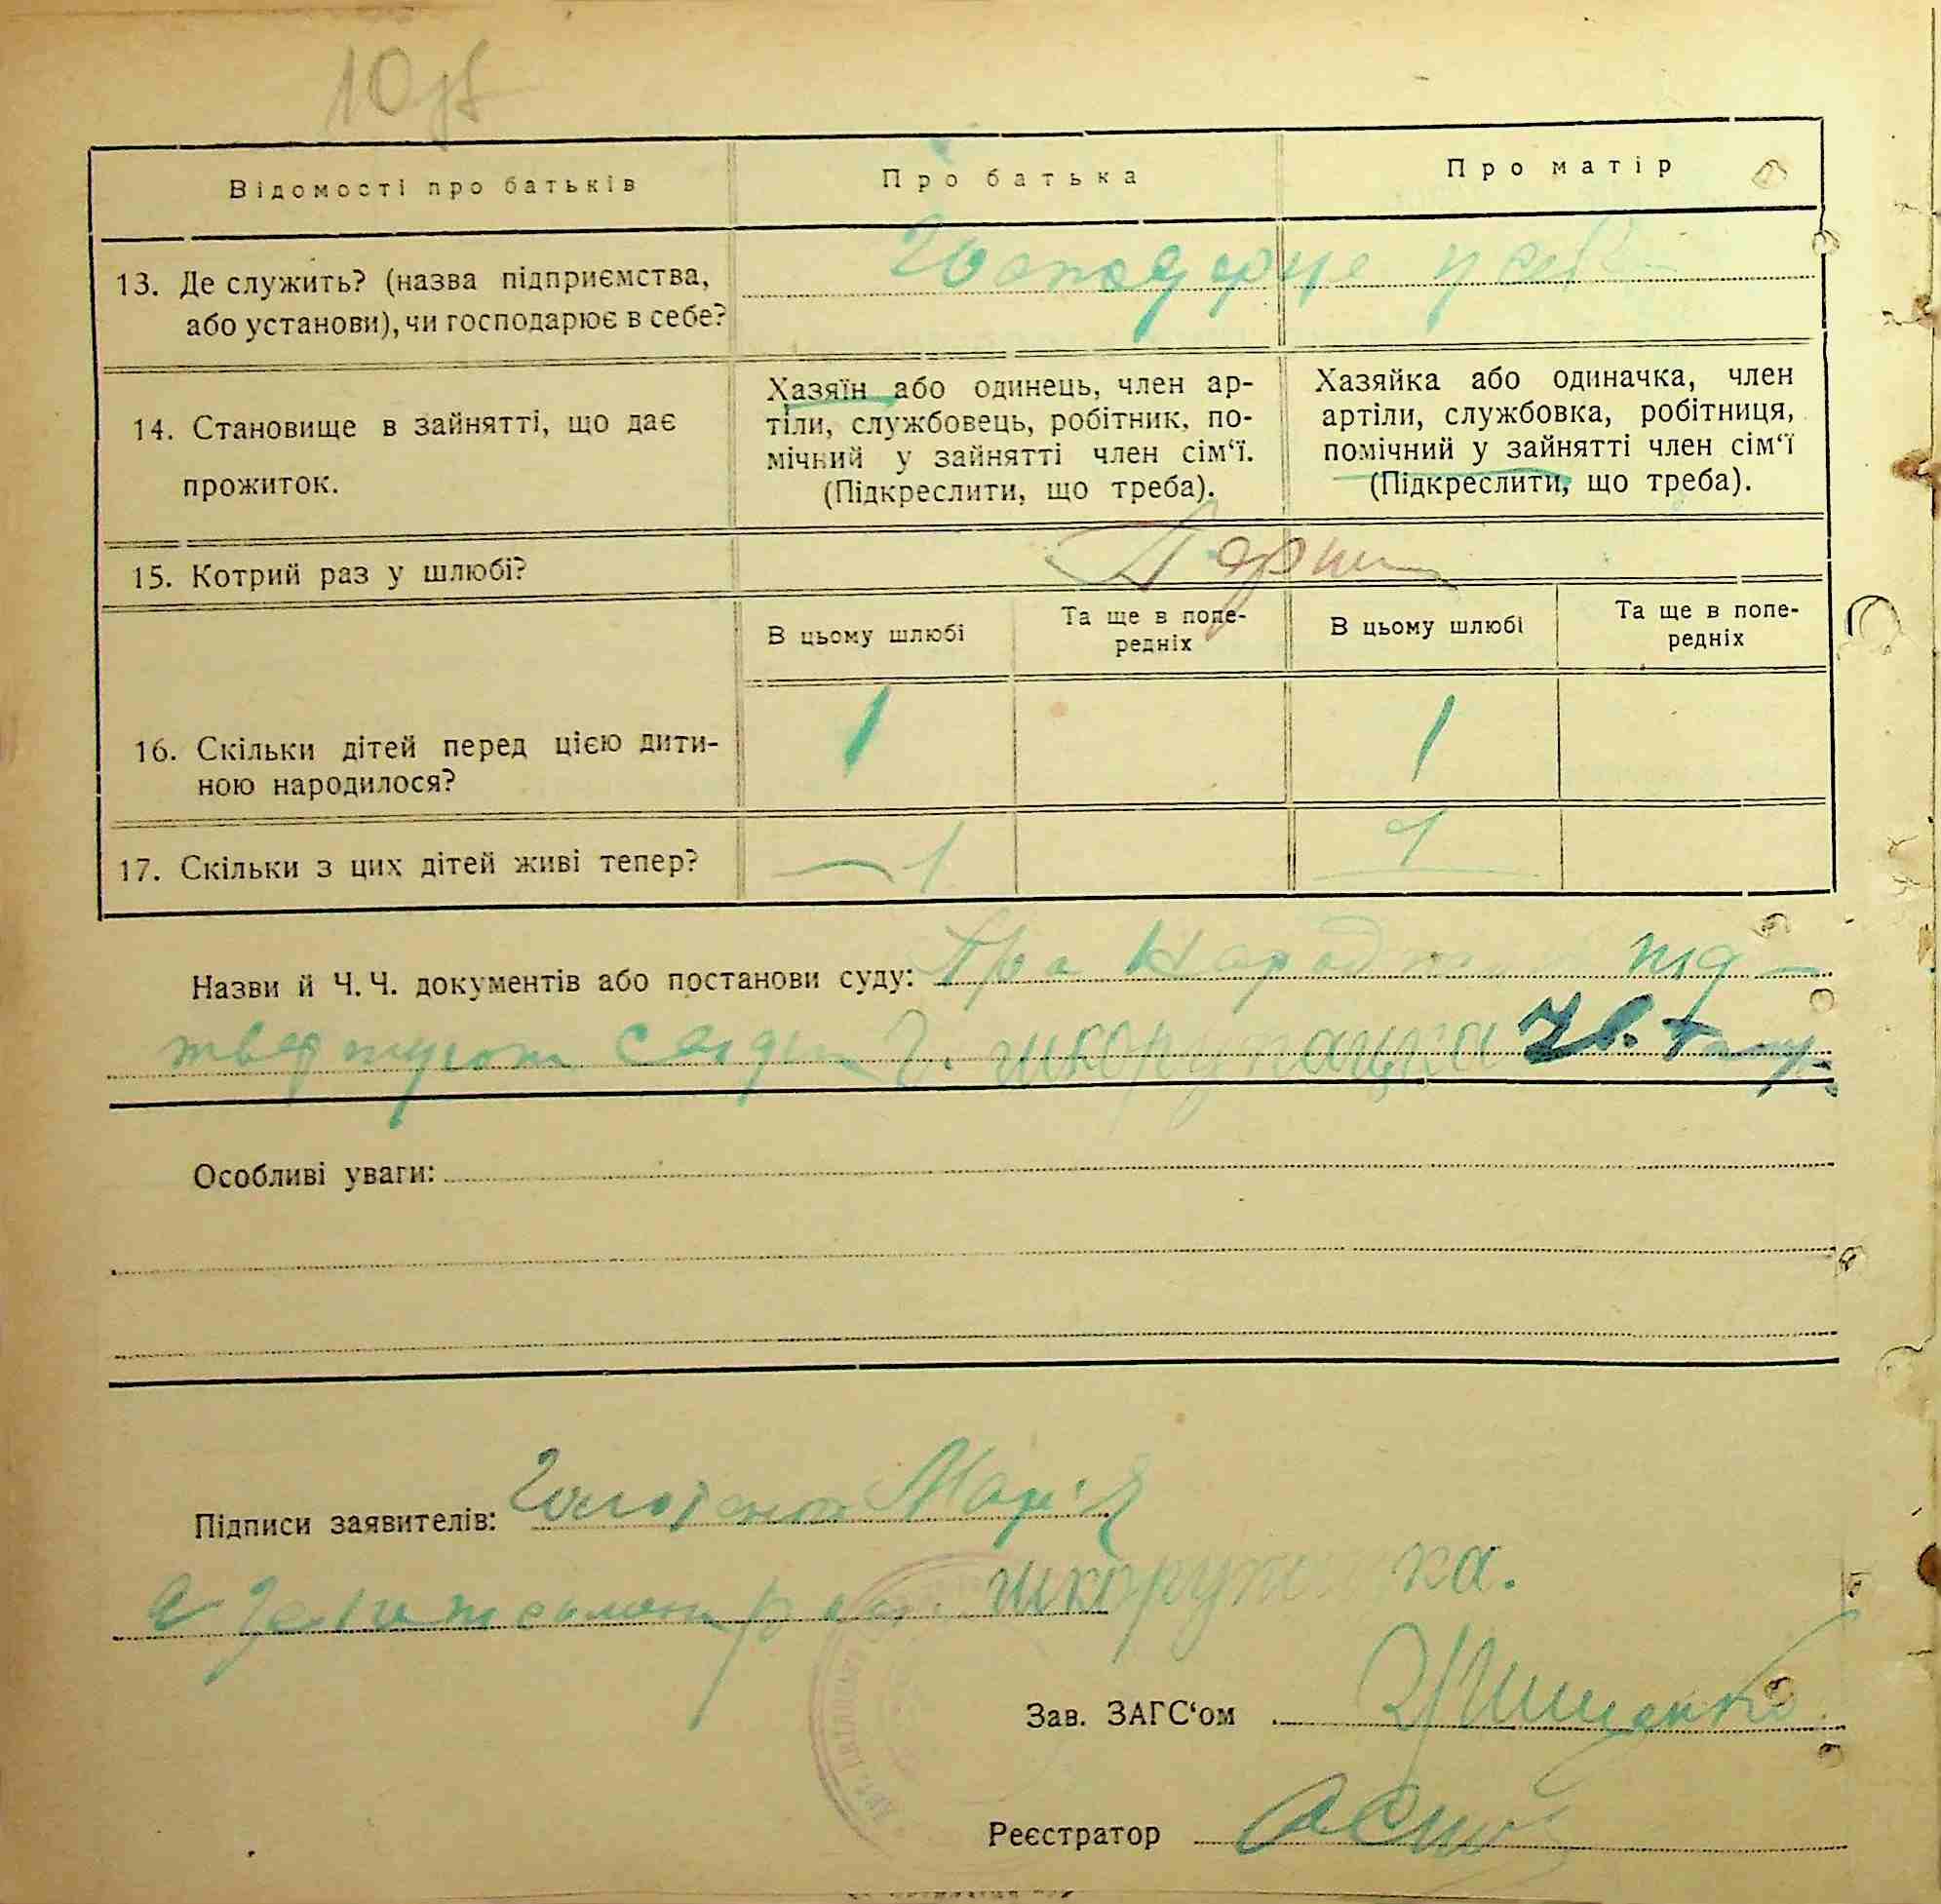 10 зв
Відомості про батьків
Про батька
Про матір
13. Де служить? (назва підприємства,
або установи), чи господарює в себе?
Господарює у себе
14. Становище в зайнятті, що дає
прожиток.
Хазяїн або одинець, член ар-
тіли, службовець, робітник, по-
мічний у зайнятті член сім‘ї.
(Підкреслити, що треба).
Хазяйка або одиначка, член
артіли, службовка, робітниця,
помічний у зайнятті член сім‘ї
(Підкреслити, що треба).
15. Котрий раз у шлюбі?
Перший
В цьому шлюбі
Та ще в попе-
редніх
В цьому шлюбі
Та ще в попе-
редніх
16. Скільки дітей перед цією дити-
ною народилося?
1
1
17. Скільки з цих дітей живі тепер?
1
1
Назви й Ч. Ч. документів або постанови суду: Про народження під-
твержують
Особливі уваги:
Підписи заявителів: Марія
Зав. ЗАГС‘ом
Реєстратор